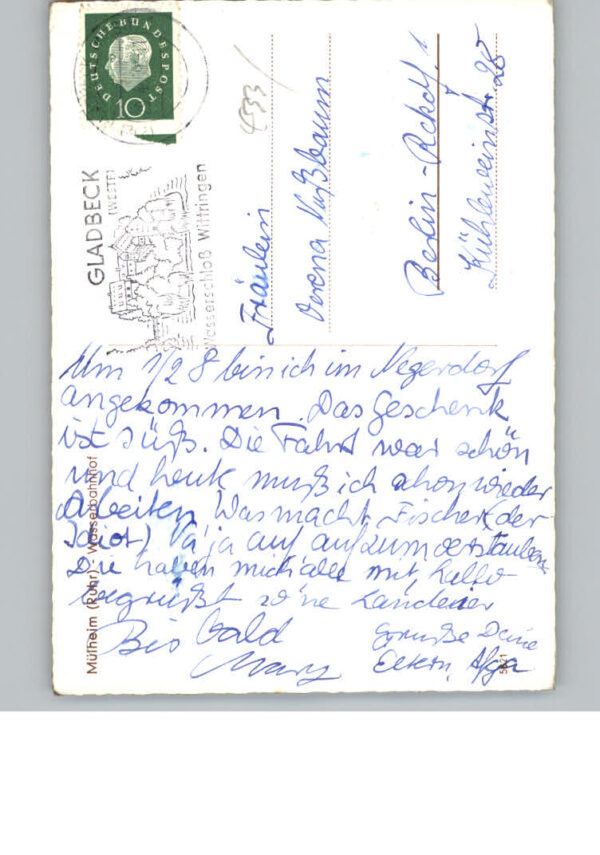 DEUTSCHE BUNDESPOST
10
GLADBECK
(WESTF)
Wasserschloß Wittringen
4533
Fräulein
Verena Nußbaum
Berlin-Rckdf. 1
Kühleweinstr. 28
Um 1/2 8 bin ich im Negerdorf
angekommen. Das Geschenk
ist süß. Die Fahrt war schön
und heute muß ich schon wieder
Arbeiten. Was macht Fischer (der
Idiot) Na ja auf
Die haben mich alle mit, Hallo
begrüßt so'ne Landeier
Bis bald
Mary
Grüße Deine
Eltern,
Mülheim (Ruhr) - Wasserbahnhof
5821